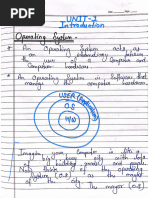 UNIT-1
Introduction
Operating System -
An Operating System acts as
an intermediary between
the user of a Computer and
Computer hardware
An Operating System is Software that
manages the Computer hardware
USER (Application)
O.S
H/W
Imagine your Computer is like
a busy city with lots
of building roads and
of the city
System (O.S) as the mayor
of the city. The mayor (O.S)